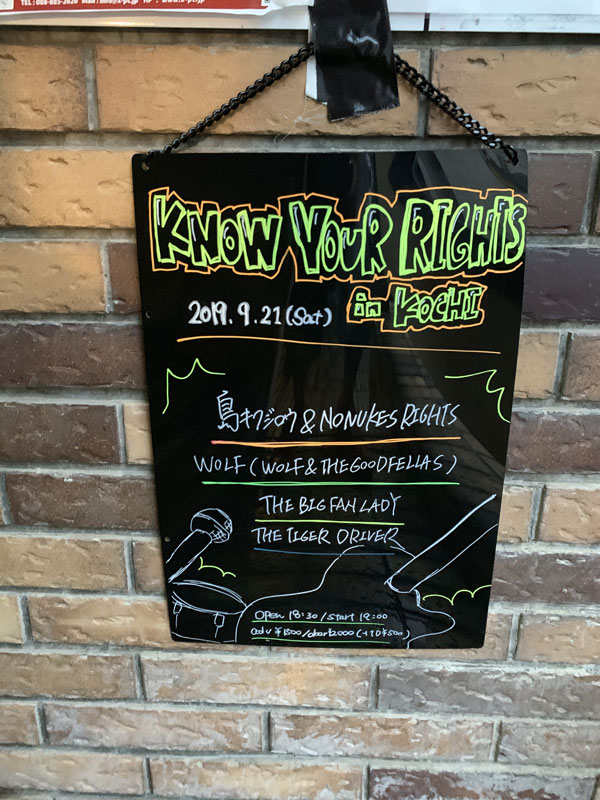 TEL:088-885-2620 Mail:info@x-pt.jp HP：www.x-pt.jp
KNOW YOUR RIGHTS
in KOCHI
2019.9.21(Sat)
島キクジロウ & NO NUKES RIGHTS
WOLF (WOLF & THE GOODFELLAS)
THE BIG FAN LADY
THE TIGER DRIVER
Open 18:30/Start 19:00
adv ¥1500/door 2000 (+1D ¥500)